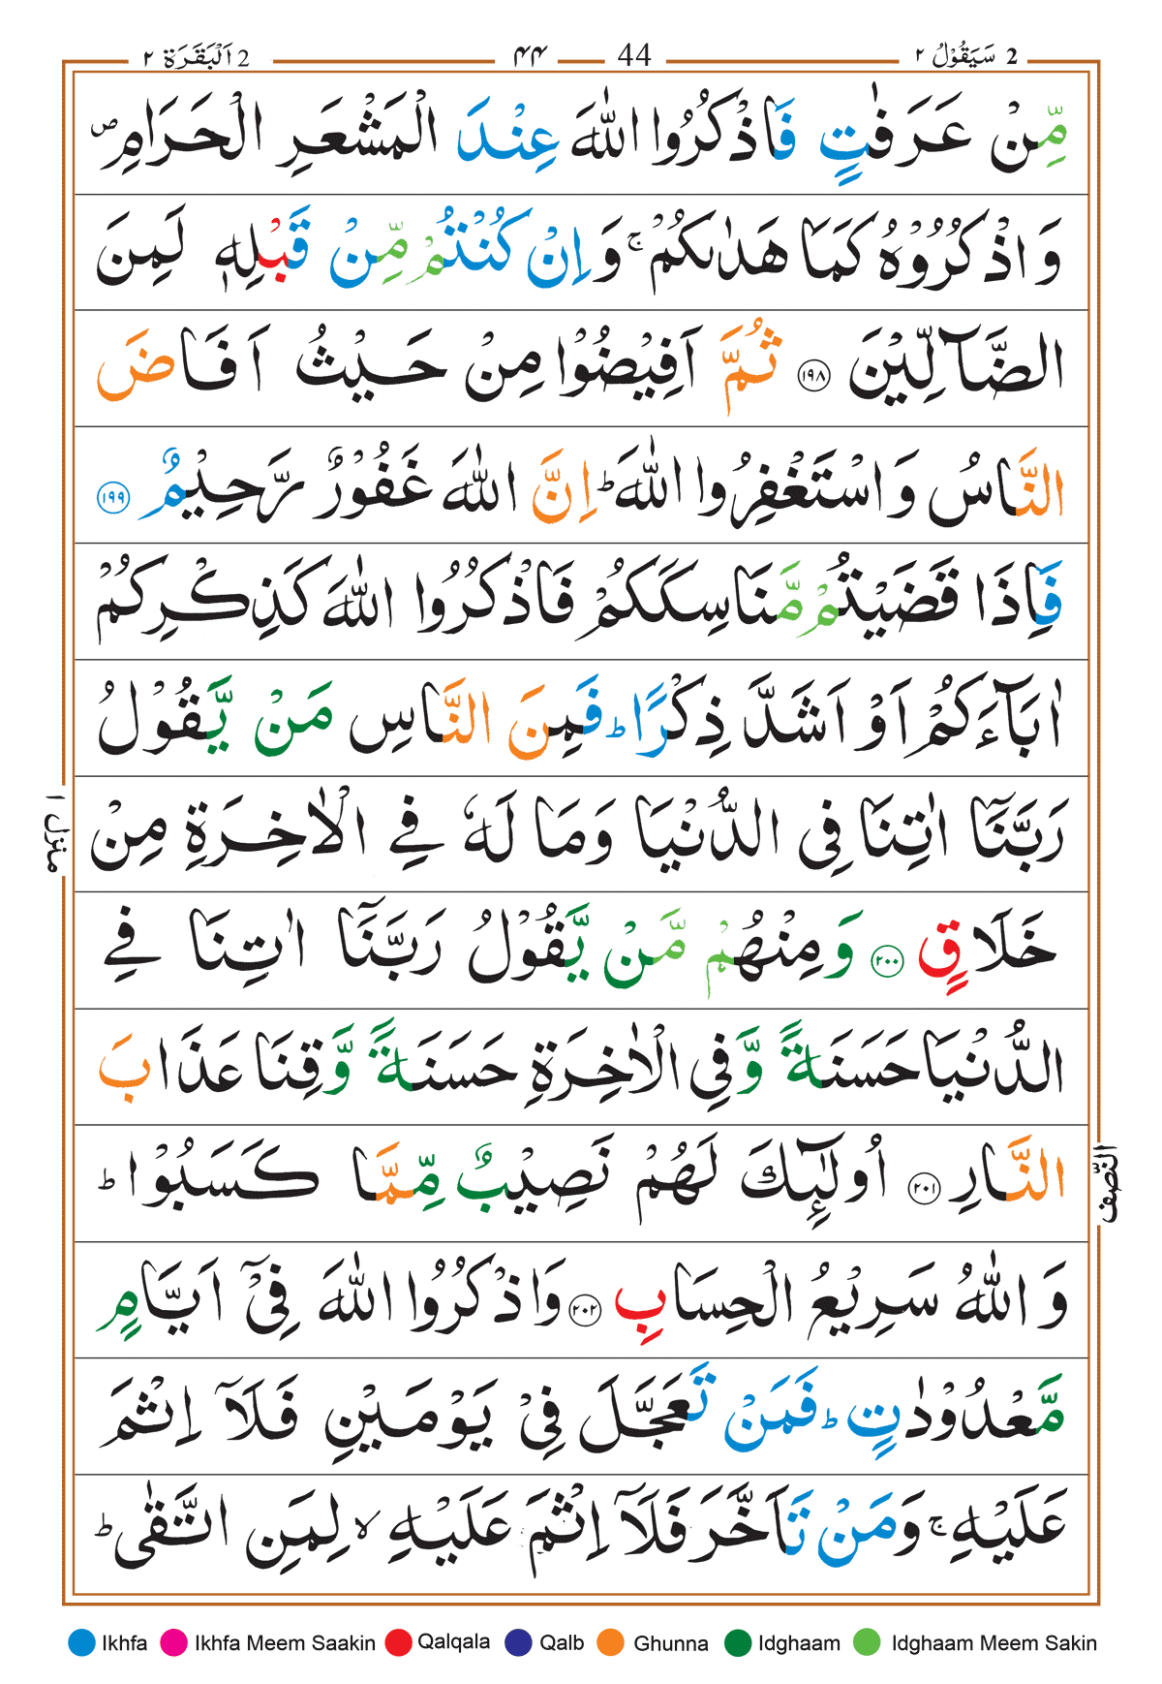 2 اَلْبَقَرَة ٢ ۴۴ 44 2 سَيَقُوْلُ ٢
مِّنْ عَرَفٰتٍ فَاذْكُرُوا اللّٰهَ عِنْدَ الْمَشْعَرِ الْحَرَامِ ۖ
وَاذْكُرُوْهُ كَمَا هَدٰىكُمْ ۚ وَاِنْ كُنْتُمْ مِّنْ قَبْلِهٖ لَمِنَ
الضَّآلِّيْنَ ﴿۱۹۸﴾ ثُمَّ اَفِيْضُوْا مِنْ حَيْثُ اَفَاضَ
النَّاسُ وَاسْتَغْفِرُوا اللّٰهَ ؕ اِنَّ اللّٰهَ غَفُوْرٌ رَّحِيْمٌ ﴿۱۹۹﴾
فَاِذَا قَضَيْتُمْ مَّنَاسِكَكُمْ فَاذْكُرُوا اللّٰهَ كَذِكْرِكُمْ
اٰبَآءَكُمْ اَوْ اَشَدَّ ذِكْرًا ؕ فَمِنَ النَّاسِ مَنْ يَّقُوْلُ
رَبَّنَآ اٰتِنَا فِى الدُّنْيَا وَمَا لَهٗ فِے الْاٰخِرَةِ مِنْ
منزل ١
خَلَاقٍ ﴿۲۰۰﴾ وَمِنْهُمْ مَّنْ يَّقُوْلُ رَبَّنَآ اٰتِنَا فِے
الدُّنْيَا حَسَنَةً وَّفِى الْاٰخِرَةِ حَسَنَةً وَّقِنَا عَذَابَ
النَّارِ ﴿۲۰۱﴾ اُولٰٓئِكَ لَهُمْ نَصِيْبٌ مِّمَّا كَسَبُوْا ؕ
النّصف
وَ اللّٰهُ سَرِيْعُ الْحِسَابِ ﴿۲۰۲﴾ وَاذْكُرُوا اللّٰهَ فِىْٓ اَيَّامٍ
مَّعْدُوْدٰتٍ ؕ فَمَنْ تَعَجَّلَ فِىْ يَوْمَيْنِ فَلَآ اِثْمَ
عَلَيْهِ ۚ وَمَنْ تَاَخَّرَ فَلَآ اِثْمَ عَلَيْهِ ۙ لِمَنِ اتَّقٰى ؕ
Ikhfa Ikhfa Meem Saakin Qalqala Qalb Ghunna Idghaam Idghaam Meem Sakin